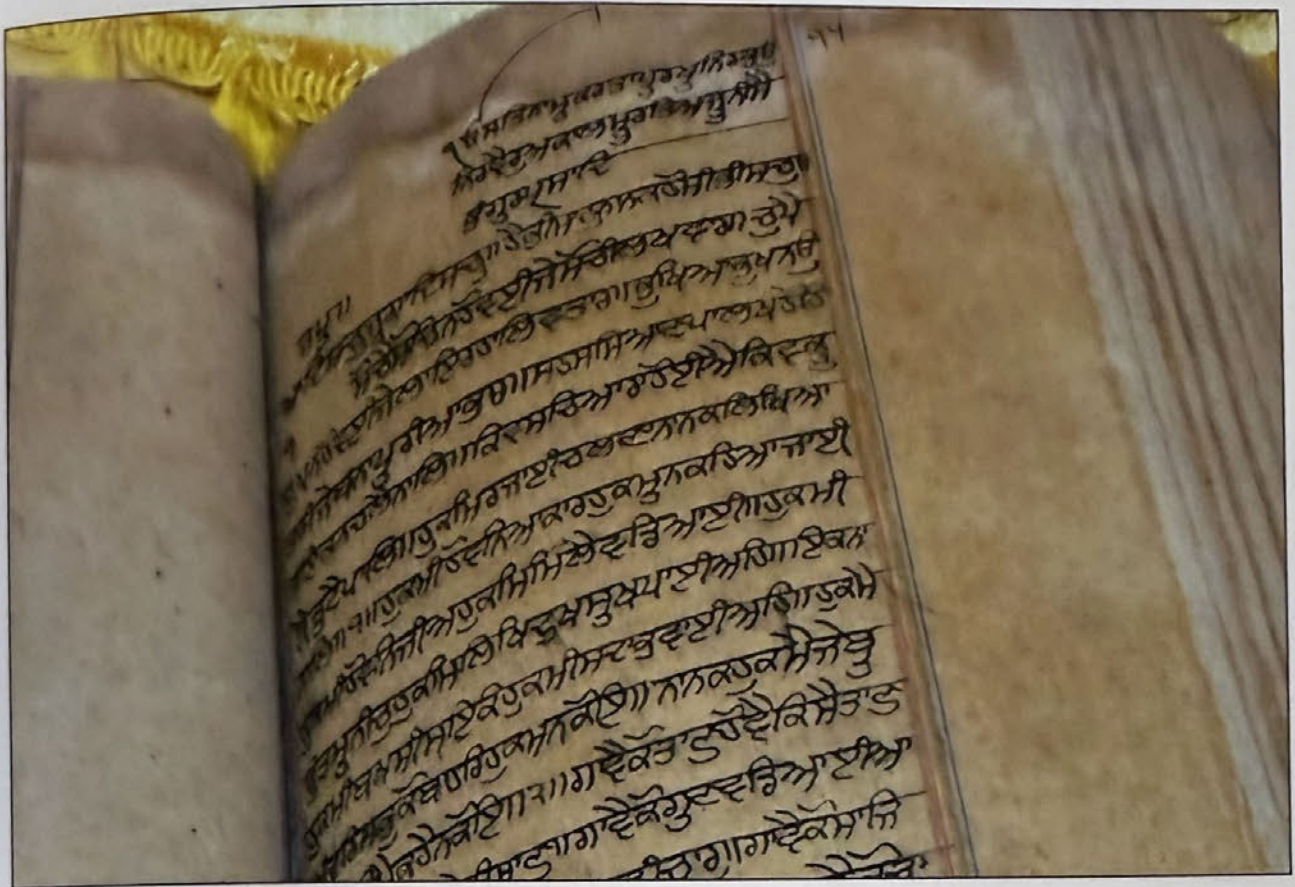 ੴ ਸਤਿਨਾਮੁ ਕਰਤਾ ਪੁਰਖੁ ਨਿਰਭਉ
ਨਿਰਵੈਰੁ ਅਕਾਲ ਮੂਰਤਿ ਅਜੂਨੀ ਸੈ
ਭੰ ਗੁਰਪ੍ਰਸਾਦਿ
ਜਪੁ॥
ਆਦਿ ਸਚੁ ਜੁਗਾਦਿ ਸਚੁ॥ ਹੈ ਭੀ ਸਚੁ ਨਾਨਕ ਹੋਸੀ ਭੀ ਸਚੁ॥
ਸੋਚੈ ਸੋਚਿ ਨ ਹੋਵਈ ਜੇ ਸੋਚੀ ਲਖ ਵਾਰ॥ ਚੁਪੈ
ਚੁਪ ਨ ਹੋਵਈ ਜੇ ਲਾਇ ਰਹਾ ਲਿਵਤਾਰ॥ ਭੁਖਿਆ ਭੁਖ ਨ ਉ
ਤਰੀ ਜੇ ਬੰਨਾ ਪੁਰੀਆ ਭਾਰ॥ ਸਹਸ ਸਿਆਣਪਾ ਲਖ ਹੋਹਿ
ਤ ਇਕ ਨ ਚਲੈ ਨਾਲਿ॥ ਕਿਵ ਸਚਿਆਰਾ ਹੋਈਐ ਕਿਵ ਕੂ
ੜੈ ਤੁਟੈ ਪਾਲਿ॥ ਹੁਕਮਿ ਰਜਾਈ ਚਲਣਾ ਨਾਨਕ ਲਿਖਿਆ
ਨਾਲਿ॥੧॥ ਹੁਕਮੀ ਹੋਵਨਿ ਆਕਾਰ ਹੁਕਮੁ ਨ ਕਹਿਆ ਜਾਈ
ਹੁਕਮੀ ਹੋਵਨਿ ਜੀਅ ਹੁਕਮਿ ਮਿਲੈ ਵਡਿਆਈ॥ ਹੁਕਮੀ
ਉਤਮੁ ਨੀਚੁ ਹੁਕਮਿ ਲਿਖਿ ਦੁਖ ਸੁਖ ਪਾਈਅਹਿ॥ ਇਕਨਾ
ਹੁਕਮੀ ਬਖਸੀਸ ਇਕਿ ਹੁਕਮੀ ਸਦਾ ਭਵਾਈਅਹਿ॥ ਹੁਕਮੈ
ਅੰਦਰਿ ਸਭੁ ਕੋ ਬਾਹਰਿ ਹੁਕਮ ਨ ਕੋਇ॥ ਨਾਨਕ ਹੁਕਮੈ ਜੇ ਬੁ
ਕਹੈ ਨ ਕੋਇ॥੨॥ ਗਾਵੈ ਕੋ ਤਾਣੁ ਹੋਵੈ ਕਿਸੈ ਤਾਣੁ
ਨੀਸਾਣੁ॥ ਗਾਵੈ ਕੋ ਗੁਣ ਵਡਿਆਈਆ
ਗਾਵੈ ਕੋ ਸਾਜਿ